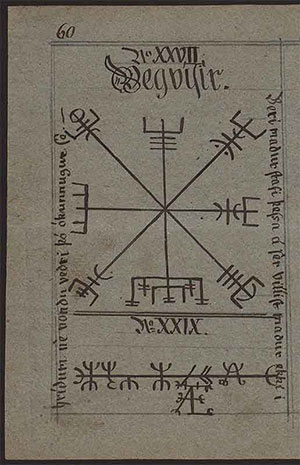 60
No XXVII.
Vegvísir.
Beri madur stafi þessa á sér villist madur ekki í
hríðum né vondu vedri þó ókunnugur sé.
No XXIX.